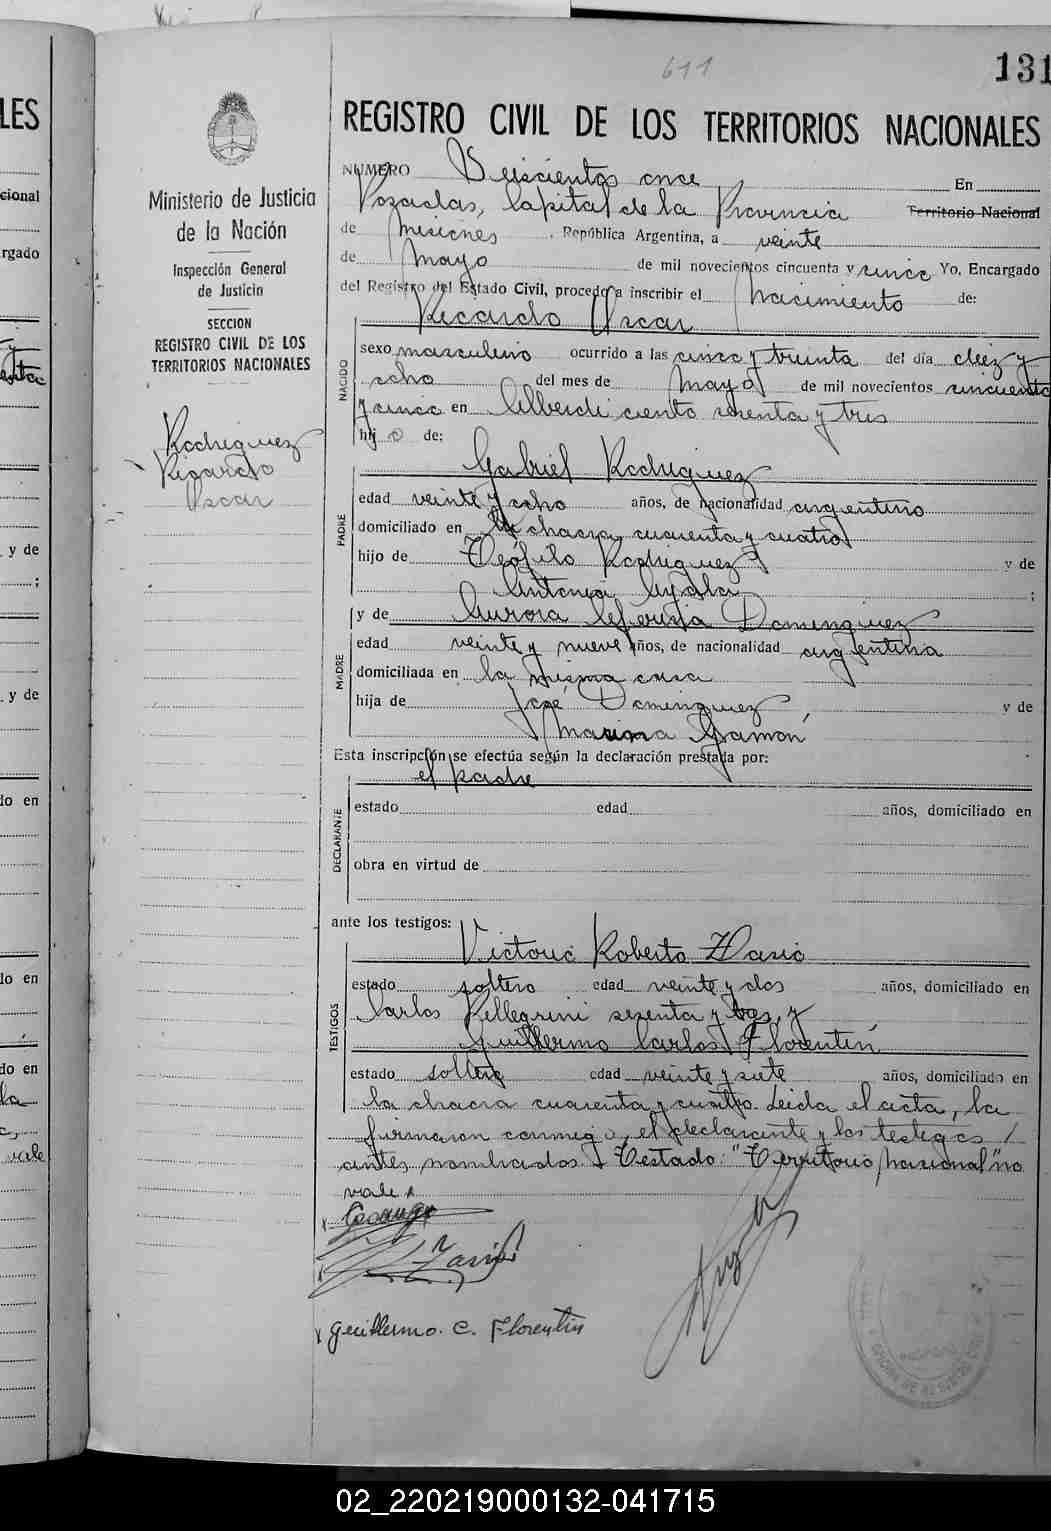 611
131
REGISTRO CIVIL DE LOS TERRITORIOS NACIONALES
Ministerio de Justicia
de la Nación
Inspección General
de Justicia
SECCION
REGISTRO CIVIL DE LOS
TERRITORIOS NACIONALES
Rodriguez
Ricardo
Oscar
NUMERO Seiscientos once En
Posadas, Capital de la Provincia Territorio Nacional
de Misiones , República Argentina, a veinte
de Mayo de mil novecientos cincuenta y cinco Yo, Encargado
del Registro del Estado Civil, procedo a inscribir el Nacimiento de:
Ricardo Oscar
NACIDO
sexo masculino ocurrido a las cinco y treinta del día diez y
ocho del mes de Mayo de mil novecientos cincuenta
y cinco en Alberdi ciento sesenta y tres
hijo de:
Gabriel Rodriguez
PADRE
edad veinte y ocho años, de nacionalidad argentino
domiciliado en la chacra cuarenta y cuatro
hijo de Teófilo Rodriguez y de
Antonia Ayala ;
y de Aurora Ceferina Dominguez
MADRE
edad veinte y nueve años, de nacionalidad argentina
domiciliada en la misma casa
hija de José Dominguez y de
Maxima Gamón
Esta inscripción se efectúa según la declaración prestada por:
el padre
DECLARANTE
estado edad años, domiciliado en
obra en virtud de
ante los testigos:
Victorio Roberto
TESTIGOS
estado soltero edad veinte y dos años, domiciliado en
Carlos Pellegrini sesenta y tres y
Guillermo Carlos Florentín
estado soltero edad veinte y siete años, domiciliado en
la chacra cuarenta y cuatro. Leida el acta, la
firmaron conmigo, el declarante y los testigos
antes nombrados. Testado: "Territorio Nacional" no
vale
Guillermo. C. Florentin
02_220219000132-041715